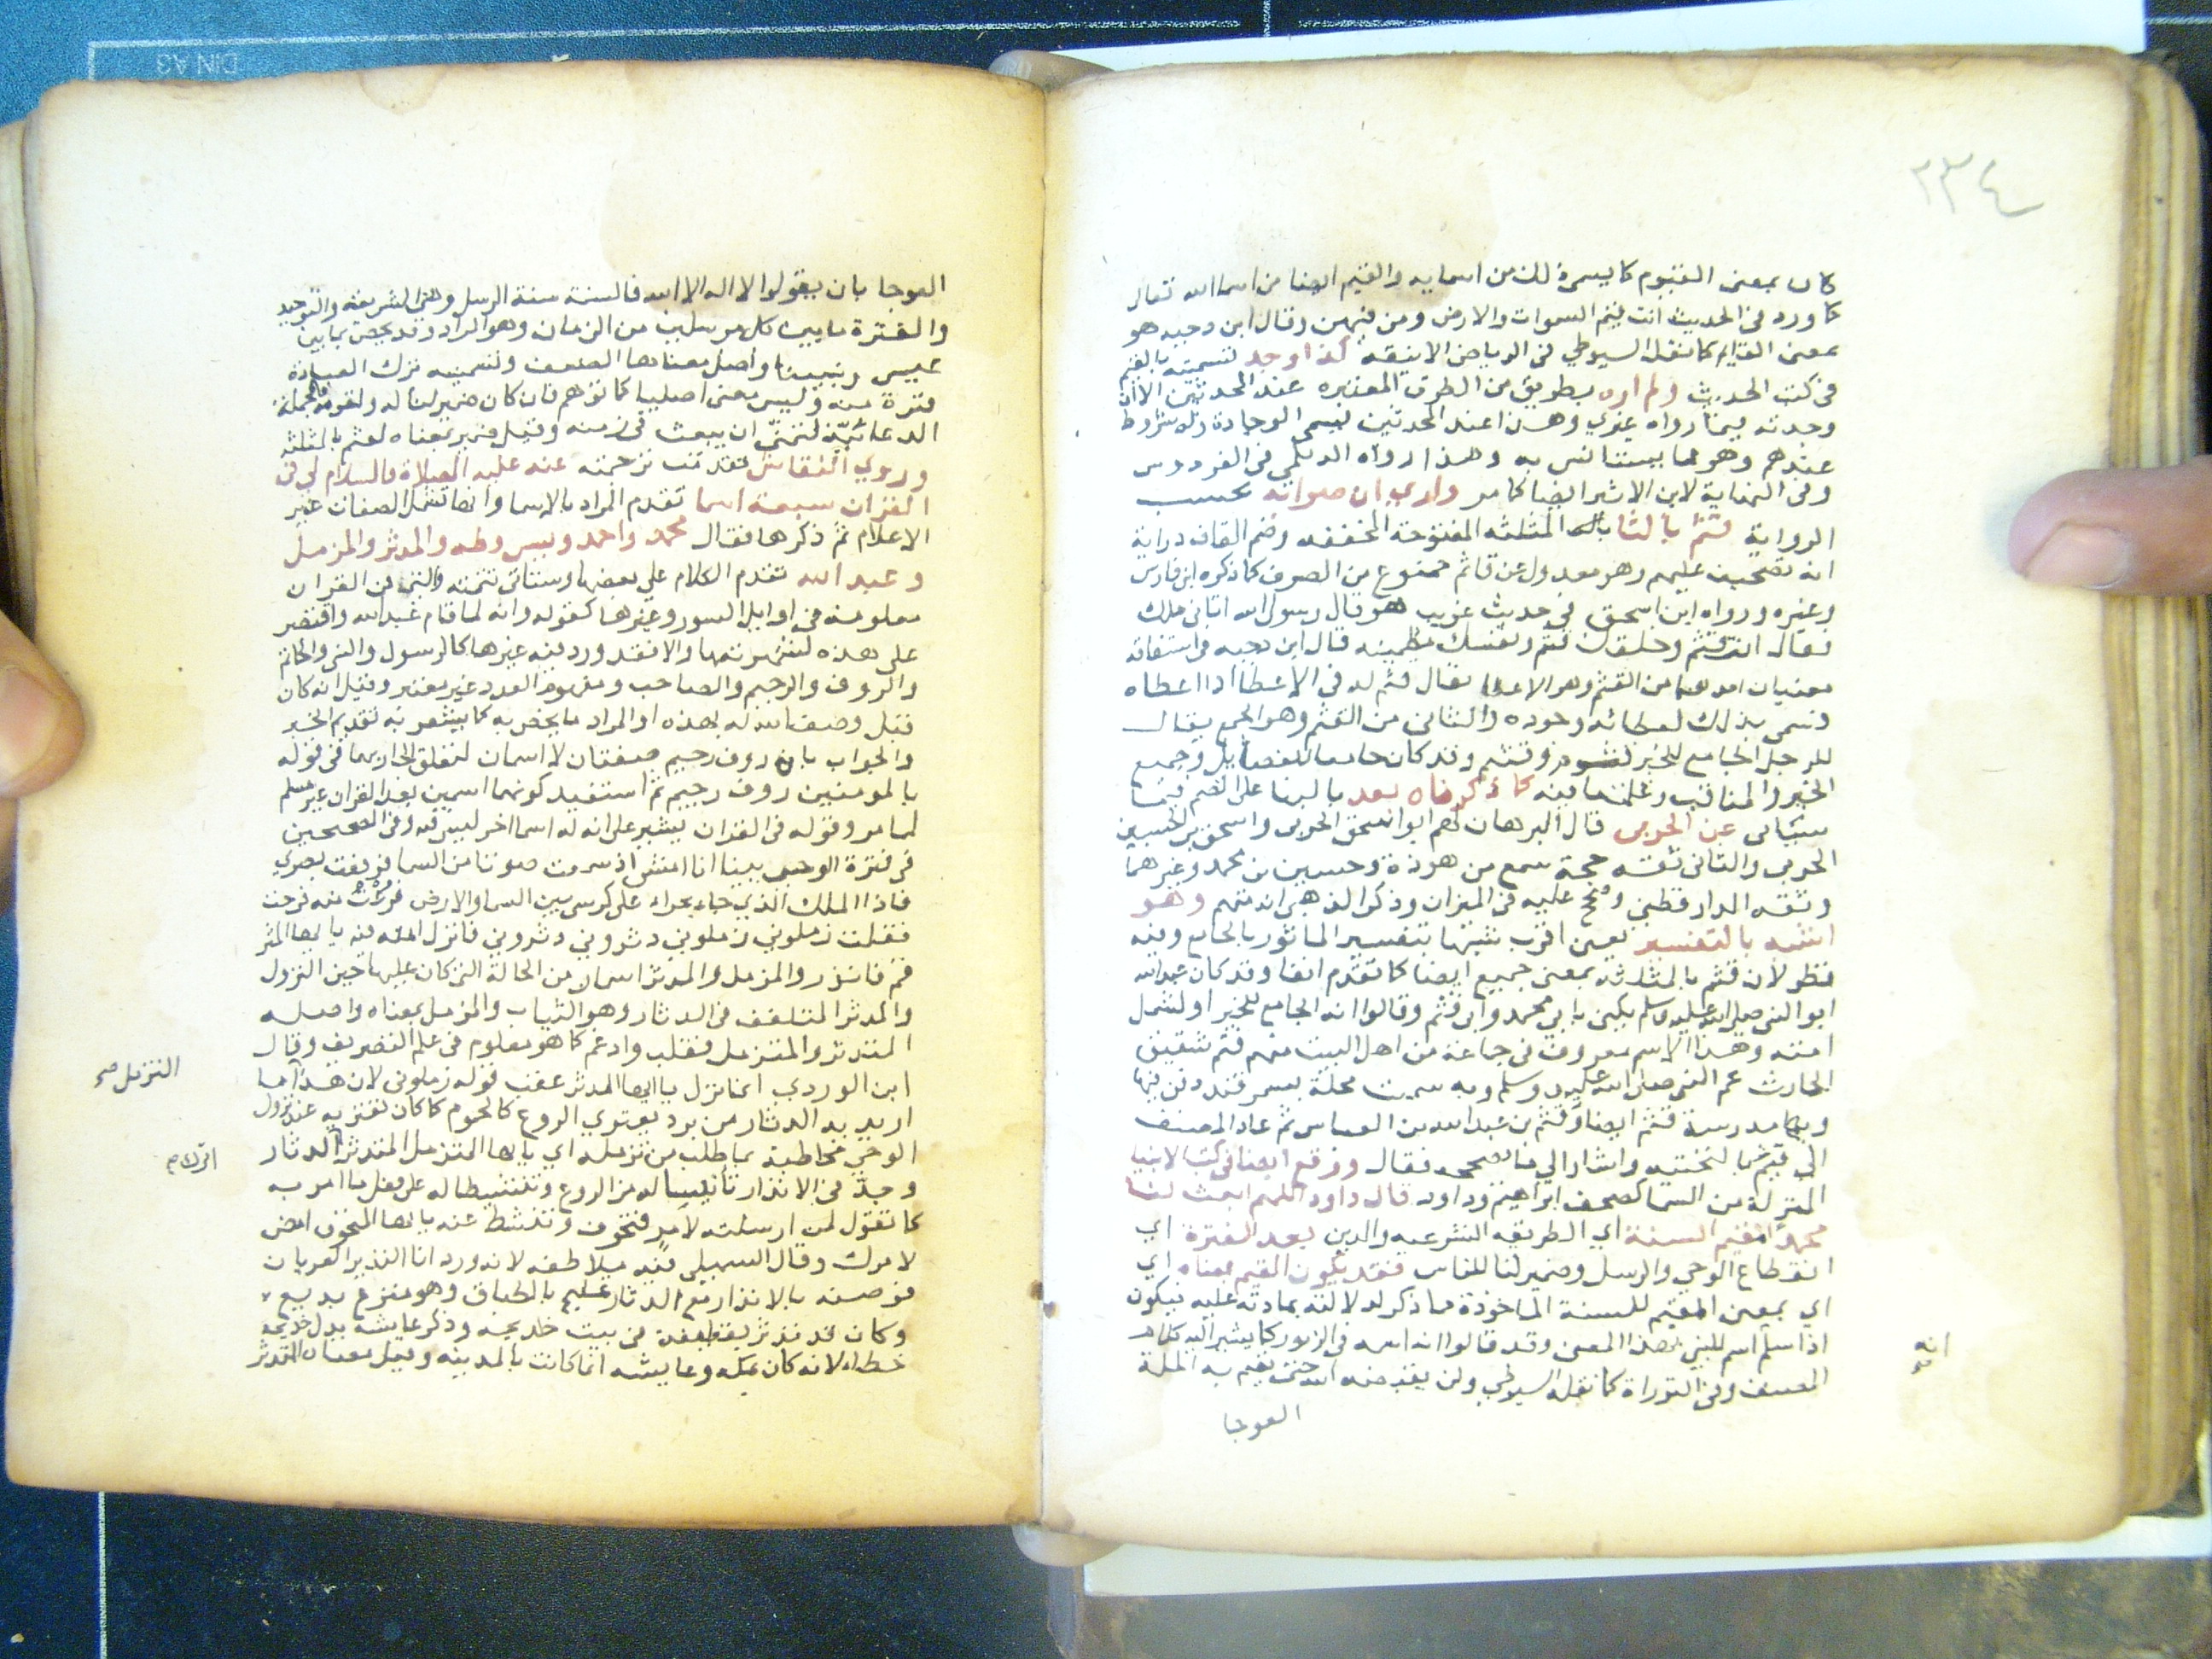 ٢٣٤
كان بمعنى القيوم كما يسمى ذلك من اسمايه والقيم ايضا من اسما الله تعالى
كما ورد في الحديث انت قيم السموات والارض ومن فيهن وقال ابن دحيه هو
بمعنى القايم كما نقله السيوطي في الرياض الانيقه كذا وجد لتسميته بالقيم
في كتب الحديث ولم اره بطريق من الطرق المعتبره عند المحدثين الا انه
وجدته فيما رواه غيري وهذا عند المحدثين ليسمى الوجادة وله شروط
عندهم وهو مما يستانس به وهذا رواه الديلمي في الفردوس
وفي النهاية لابن الاثير ايضا كما مر واري ان صوابه بحسب
الرواية قثم بالثا المثلثه المفتوحة المخففه وضم القاف دراية
انه تصحيف عليهم وهو معدول عن قاثم ممنوع من الصرف كما ذكره ابن فارس
وغيره ورواه ابن اسحق في حديث غريب هو قال رسول الله اتاني ملك
فقال انت قثم وخلقك قثم ونفسك مطمينه قال ابن دحيه في اشتقاقه
معنيان احدهما من القثم وهو الاعطا يقال قثم له في الاعطا اذا اعطاه
وسمي بذلك لعطائه وجوده والثاني من القثم وهو الجمع يقال
للرجل الجامع للخير قثوم وقثم وقد كان جامعا للفضايل وجميع
الخير والمناقب كما ذكرناه بعد بالبنا على الضم فيما
سياتي عن الحربي قال البرهان هم ابو اسحق الحربي واسحق بن الحسين
الحربي والثاني ثقه حجة سمع من هوذة وحسين بن محمد وغيرهما
وثقه الدارقطني وصح عليه في الميزان وذكر الذهبي انه متهم وهو
اشبه بالتفسير يعني اقرب شبها بتفسير الماثور بالجامع وفيه
نظر لان قثم بالمثلثه بمعنى جميع ايضا كما تقدم انفا وقد كان عبد الله
ابو النبي صلى الله عليه وسلم يكنى بابي محمد وابي قثم وقالوا انه الجامع للخير او لشمل
امته وهذا الاسم معروف في جماعة من اهل البيت منهم قثم شقيق
الحارث عم النبي صلى الله عليه وسلم وبه سميت محلة بسمرقند دفن فيها
وبها مدرسة قثم ايضا وقثم بن عبد الله بن العباس ثم عاد المصنف
الى قيم بالتحتيه واشار الي ما يصححه فقال ووقع ايضا في كتب الانبيا
المنزلة من السما كصحف ابراهيم وداود قال داود اللهم ابعث لنا
محمدا مقيم السنة اي الطريقه الشرعيه والدين بعد الفترة اي
انقطاع الوحي والرسل وضمير لنا للناس فقد يكون القيم بمعناه اي
اي بمعنى المقيم للسنة الماخوذة مما ذكر لدلالته بمادته عليه فيكون
اذا سلم اسم للنبي بهذا المعنى وقد قالوا انه اسمه في الزبور كما يشير اليه كلام
المصنف وفي التوراة كما نقله السيوطي ولن يقبضه الله حتى يقيم به الملة
انه
العوجا
العوجا بان يقولوا لا اله الا الله فالسنة سنة الرسل وهي الشريعه والتوحيد
والفترة ما بين كل مرسلين من الزمان وهو المراد وقد يخص بما بين
عيسى ونبينا واصل معناها الضعف ولتسميه ترك العبادة
فترة منه وليس معنى اصليا كما توهم فان كان ضمير لنا له ولقومه فالجملة
الدعائيّة لتمنّي ان يبعث في زمنه وقيل بمعناه لقثم بالمثلثه
وروي النقاش تقدمت ترجمته عنه عليه الصلاة والسلام لي في
القران سبعة اسما تقدم المراد بالاسما وانها تشمل الصفات غير
الاعلام ثم ذكرها فقال محمد واحمد ويس وطه والمدثر والمزمل
وعبد الله تقدم الكلام علي بعضها وستاتي تتمته والتي في القران
معلومه في اوايل السور وغيرها كقوله وانه لما قام عبد الله واقتصر
على هذه لشهرتها والا فقد ورد فيه غيرها كالرسول والنبي والخاتم
والروف والرحيم والصاحب ومفهوم العدد غير معتبر وقيل انه كان
قبل وصف الله له بهذه او المراد ما يختص به كما يشعر به تقديم الخبر
والجواب بان روف رحيم صفتان لا اسمان لتعلق الجار بهما في قوله
بالمومنين روف رحيم ثم استفيد كونهما اسمين بعد القران غير مسلم
لما مر وقوله في القران يشير على انه له اسما اخر ليس فيه وفي الصحيحين
في فترة الوحي بينا انا امشي اذ سمعت صوتا من السما فرفعت بصري
فاذا الملك الذي جاء بحراء على كرسي بين السما والارض فرعبت منه فرجعت
فقلت زملوني زملوني دثروني دثروني فانزل الله فيه يا ايها المدثر
قم فانذر والمزمل والمدثر اسمان من الحالة التي كان عليها حين النزول
والمدثر المتلفف في الدثار وهو الثياب والمزمل بمعناه واصله
المتدثر والمتزمل فقلب وادغم كما هو معلوم في علم التصريف وقال
ابن الوردي انما نزل يا ايها المدثر عقب قوله زملوني لان هذا ما
اريد به الدثار من برد يعتري الروع كالمحموم كما كان يعتريه عند نزول
الوحي مخاطبة بما طلب من تزمله اي يا ايها المتزمل المتدثر الدثار
وجدّ في الانذار تأنيسا له من الروع وتنشيطا له على فعل ما امر به
كما تقول لمن ارسلته لامر فتخوف وتنشطه عنه يا ايها المتخوف امض
لامرك وقال السهيلي فيه ملاطفه لانه ورد انا النذير العريان
فوصفه بالانذار مع الدثار بالطباق وهو منزع بديع
وكان قد تدثر بقطيفة في بيت خديجه وذكر عايشه بدل خديجه
خطاء لانه كان بمكه وعايشه انما كانت بالمدينه وقيل معناه المتدثر
التزمل صح
اترك